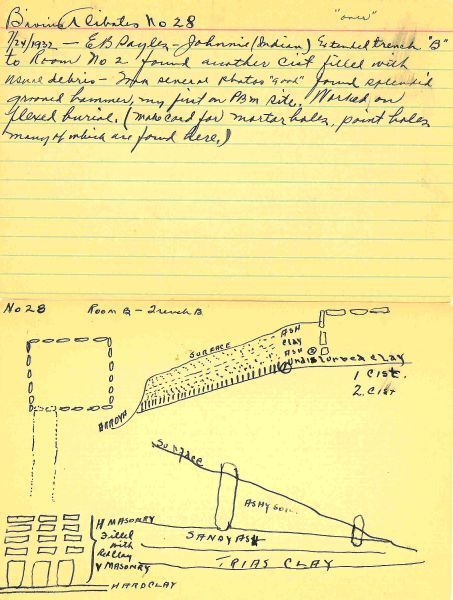 Bivins Alibates No 28 "over"
7/24/1932 — E B Sayles — Johnnie (Indian) Extended trench "B"
to Room No 2 found another Cist filled with
usual debris — several photos "good" found splendid
grooved hammer, my first on PBM site. Worked on
flexed burial. (make card for mortar holes, point holes,
many of which are found here.)
No 28 Room 2 — Trench B.
SURFACE
ASH
CLAY
ASH
Undisturbed clay
1 Cist.
2 Cist
ARROYO
Surface
ASHY SOIL
H MASONRY
Filled
with
Red Clay
V MASONRY
SANDY ASH
TRIAS CLAY
HARD CLAY